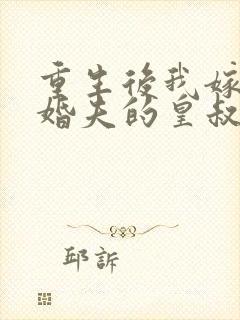 重生後我嫁
婚夫的皇叔
邱訴